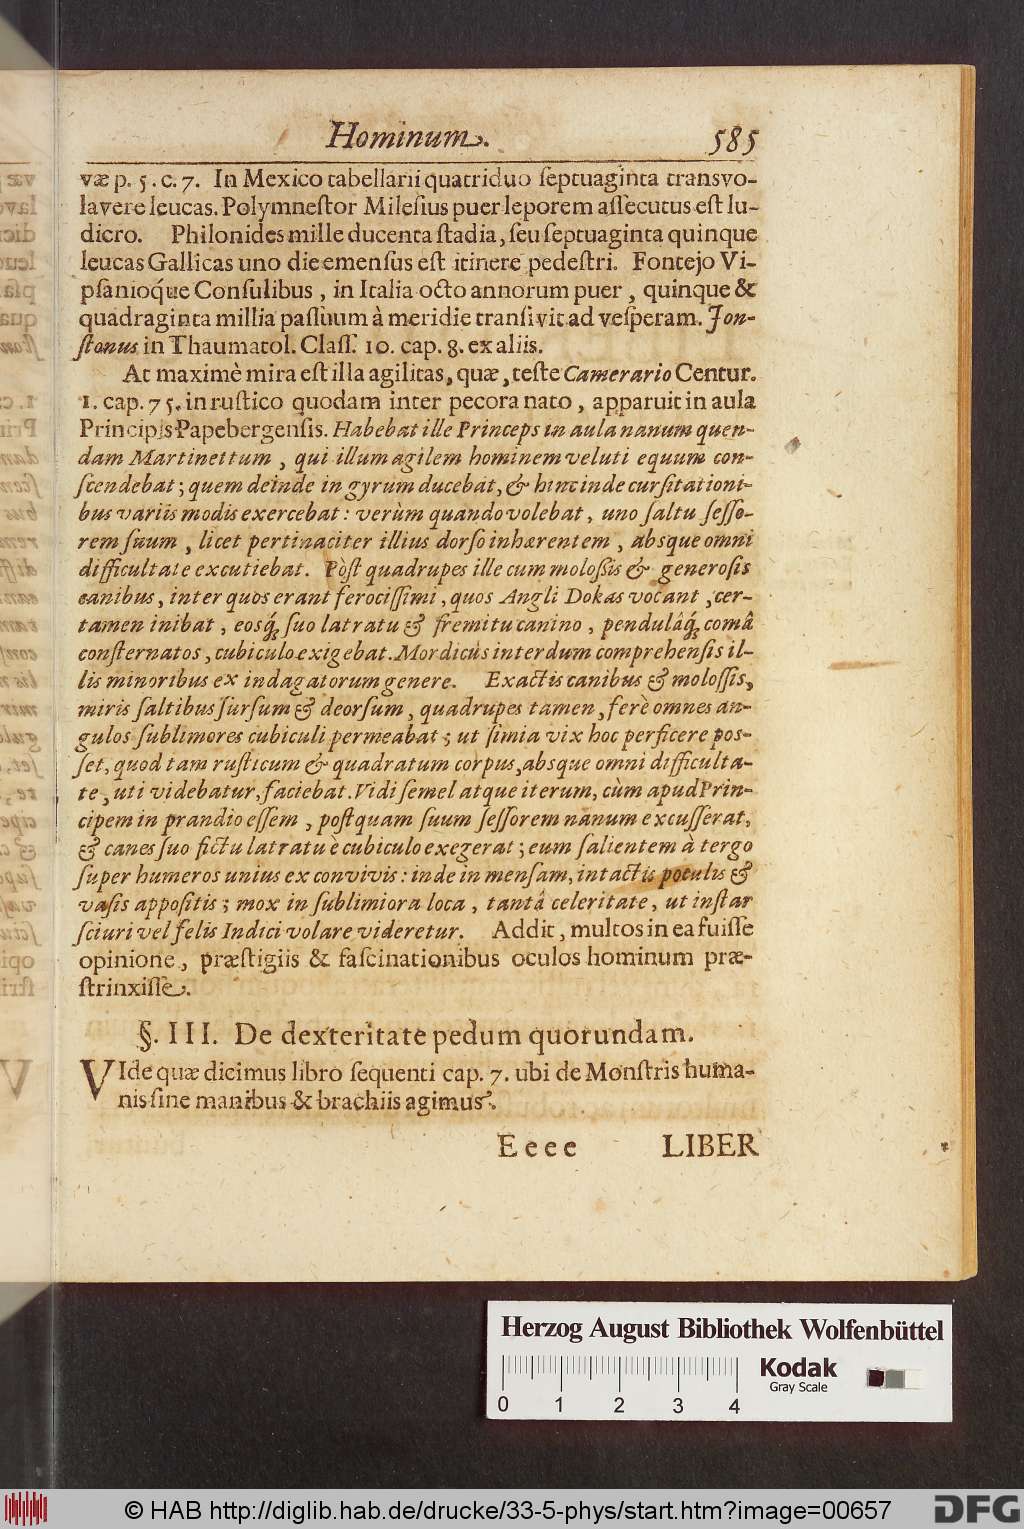 Hominum. 585
væ p. 5. c. 7. In Mexico tabellarii quatriduo ſeptuaginta transvo-
lavere leucas. Polymneſtor Mileſius puer leporem aſſecutus eſt lu-
dicro. Philonides mille ducenta ſtadia, ſeu ſeptuaginta quinque
leucas Gallicas uno die emenſus eſt itinere pedeſtri. Fontejo Vi-
pſanioq́ue Conſulibus, in Italia octo annorum puer, quinque &
quadraginta millia paſſuum à meridie tranſivit ad veſperam. Jon-
ſtonus in Thaumatol. Claſſ. 10. cap. 8. ex aliis.
At maximè mira eſt illa agilitas, quæ, teſte Camerario Centur.
1. cap. 75. in ruſtico quodam inter pecora nato, apparuit in aula
Principis Papebergenſis. Habebat ille Princeps in aula nanum quen-
dam Martinettum, qui illum agilem hominem veluti equum con-
ſcendebat; quem deinde in gyrum ducebat, & hinc inde curſitationi-
bus variis modis exercebat: verùm quando volebat, uno ſaltu ſeſſo-
rem ſuum, licet pertinaciter illius dorſo inhærentem, absque omni
difficultate excutiebat. Pòſt quadrupes ille cum moloſſis & generoſis
canibus, inter quos erant ferociſſimi, quos Angli Dokas vocant, cer-
tamen inibat, eosq́; ſuo latratu & fremitu canino, pendulâq́; comâ
conſternatos, cubiculo exigebat. Mordicùs interdum comprehenſis il-
lis minoribus ex indagatorum genere. Exactis canibus & moloſſis,
miris ſaltibus ſurſum & deorſum, quadrupes tamen, ferè omnes an-
gulos ſublimores cubiculi permeabat; ut ſimia vix hoc perficere pos-
ſet, quod tam ruſticum & quadratum corpus, absque omni difficulta-
te, uti videbatur, faciebat. Vidi ſemel atque iterum, cùm apud Prin-
cipem in prandio eſſem, poſtquam ſuum ſeſſorem nanum excuſſerat,
& canes ſuo fictu latratu è cubiculo exegerat; eum ſalientem à tergo
ſuper humeros unius ex convivis: inde in menſam, intactis poculis &
vaſis appoſitis; mox in ſublimiora loca, tantâ celeritate, ut inſtar
ſciuri vel felis Indici volare videretur. Addit, multos in ea fuiſſe
opinione, præſtigiis & faſcinationibus oculos hominum præ-
ſtrinxiſſe.
§. III. De dexteritate pedum quorundam.
VIde quæ dicimus libro ſequenti cap. 7. ubi de Monſtris huma-
nis ſine manibus & brachiis agimus.
Eeee LIBER
Herzog August Bibliothek Wolfenbüttel
Kodak
Gray Scale
0 1 2 3 4
© HAB http://diglib.hab.de/drucke/33-5-phys/start.htm?image=00657
DFG